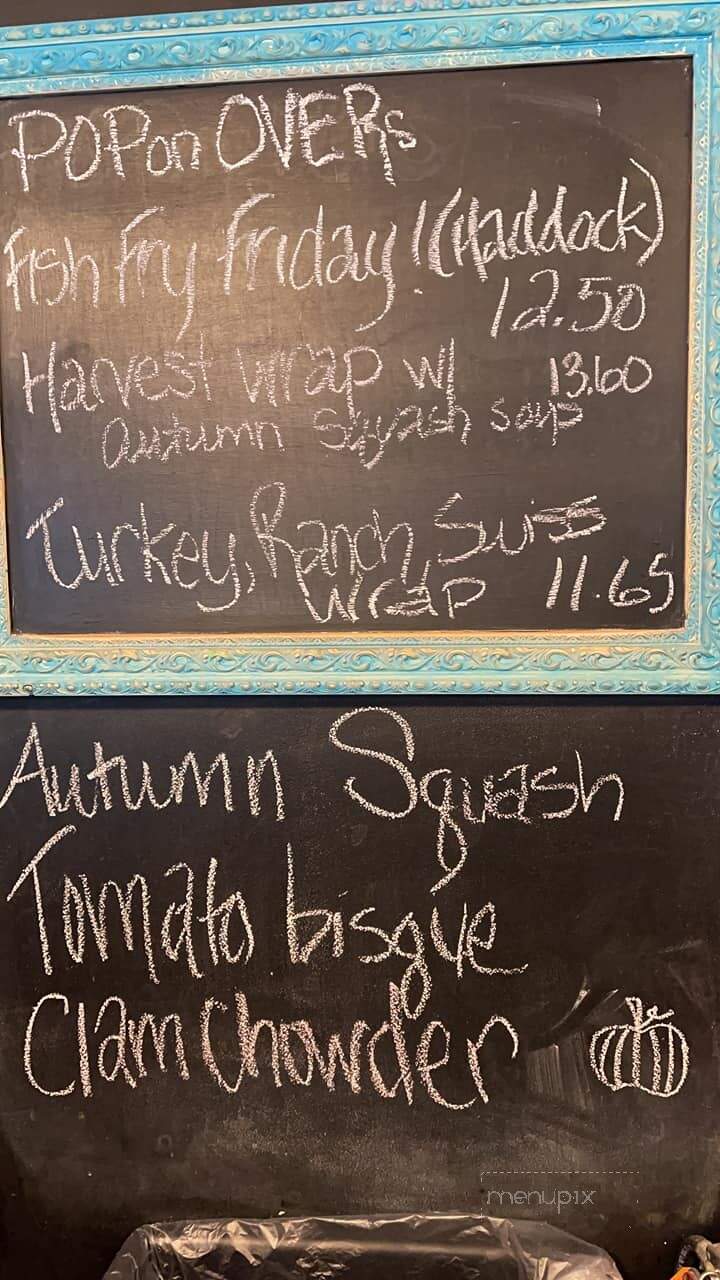 POPon OVERs
Fish Fry Friday! (Haddock)
12.50
Harvest Wrap w/ 13.60
Autumn Squash soup
Turkey, Ranch, Swiss
Wrap 11.65
Autumn Squash
Tomato bisque
Clam Chowder
menupix